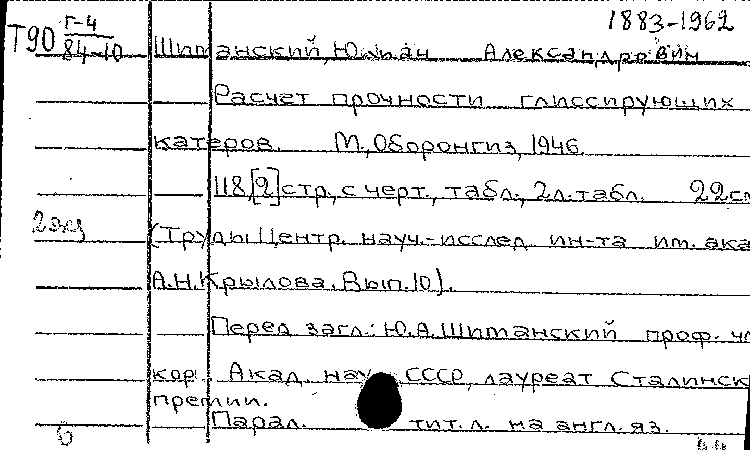 1883-1962
Т90 Г-4
84-10 Шиманский, Юлиан Александрович
Расчет прочности глиссирующих
катеров. М, Оборонгиз, 1946.
118 [2] стр., с черт., табл., 2 л. табл. 22см
2 экз (Труды Центр. науч.-исслед ин-та им. ака
А.Н.Крылова. Вып. 10).
Перед загл.: Ю.А.Шиманский проф. чл
кор. Акад. нау СССР, лауреат Сталинск
премии.
Парал. тит. л. на англ. яз.
б
44